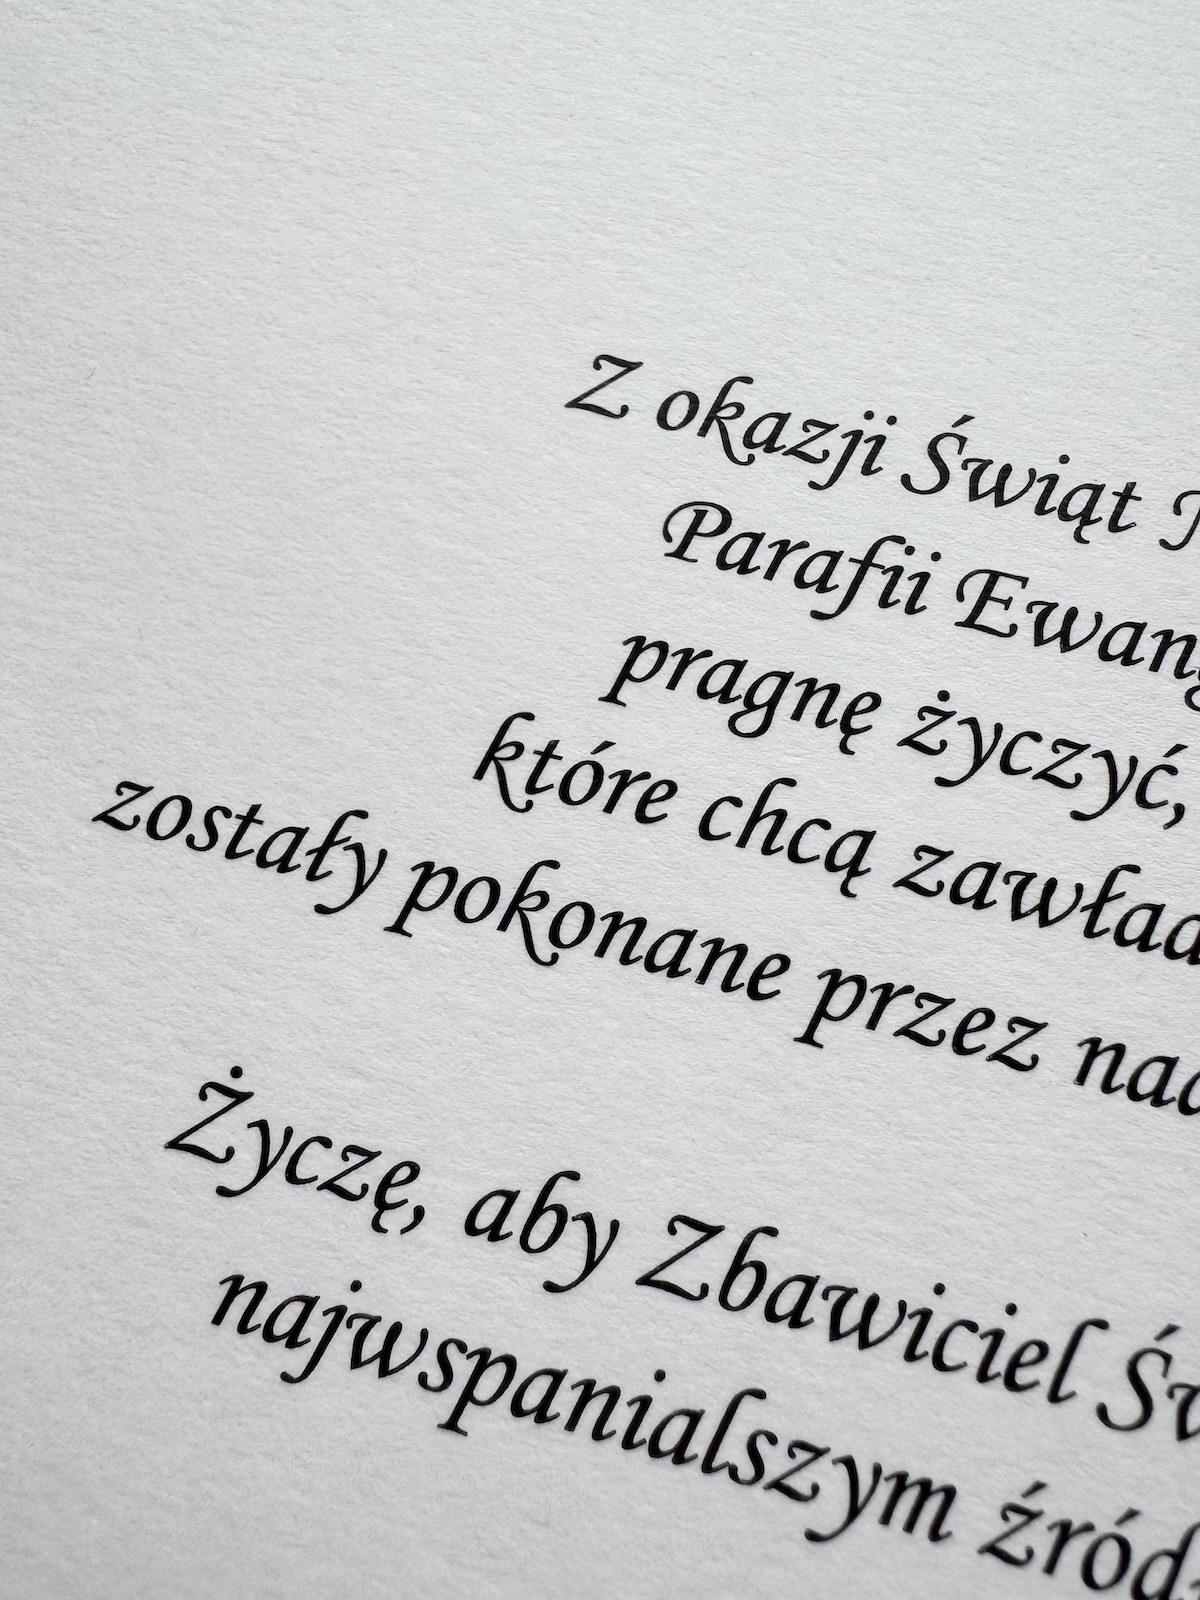 Z okazji Świąt
Parafii Ewang
pragnę życzyć,
które chcą zawład
zostały pokonane przez nad
Życzę, aby Zbawiciel Św
najwspanialszym źród